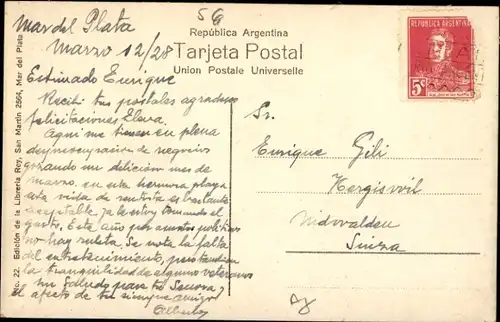 Mar del Plata
Marzo 12/28
Estimado Enrique
Recibi tus postales agradezco
felicitaciones Elena.
Aqui me tienes en plena
despreocupación de negocios
gozando un delicioso mes de
Marzo, en esta hermosa playa
esta vida de rentista es bastante
aceptable, ya le estoy tomando el
gusto. Este año por asuntos politicos
no hay ruleta. Se nota la falta
del entretenimiento, pero tambien
la tranquilidad de algunos veteranos
un saludo para tu Señora, y
el afecto de tu siempre amigo
59
República Argentina
Tarjeta Postal
Union Postale Universelle
REPUBLICA ARGENTINA
5
Sr.
Enrique Gili
Hergiswil
Nidwalden
Suiza
No. 22. Edición de la Librería Rey, San Martin 2564, Mar del Plata